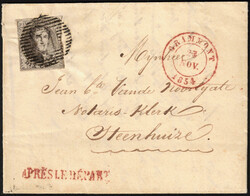 GRIMMONT
22
NOV.
1854
Mynheer
Jean Bte Vande Noortgate
Notaris Klerk
Steenhuize
APRÈS LE DÉPART